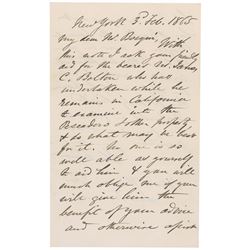 New York 3d Feb. 1865
My dear Mr
With
this note I ask your kind
aid for the bearer Rev. James
C. Bolton who has
undertaken while he
remains in California
to examine into the
Pescadero & other property
& do what may be best
for it. No one is so
well able as yourself
to aid him & you will
much oblige me if you
will give him the
benefit of your advice
and otherwise